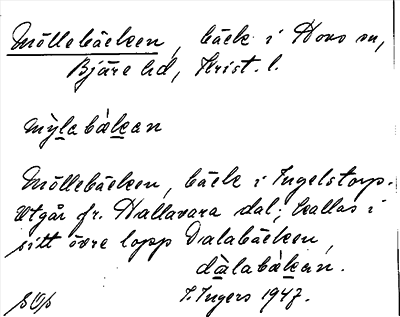 Möllebäcken, bäck i Hovs sn,
Bjäre hd, Krist. l.
mỳlabækan
Möllebäcken, bäck i Ingelstorp.
Utgår fr. Hallavara dal; kallas i
sitt övre lopp Dalabäcken,
dàlabækan.
I. Ingers 1947.